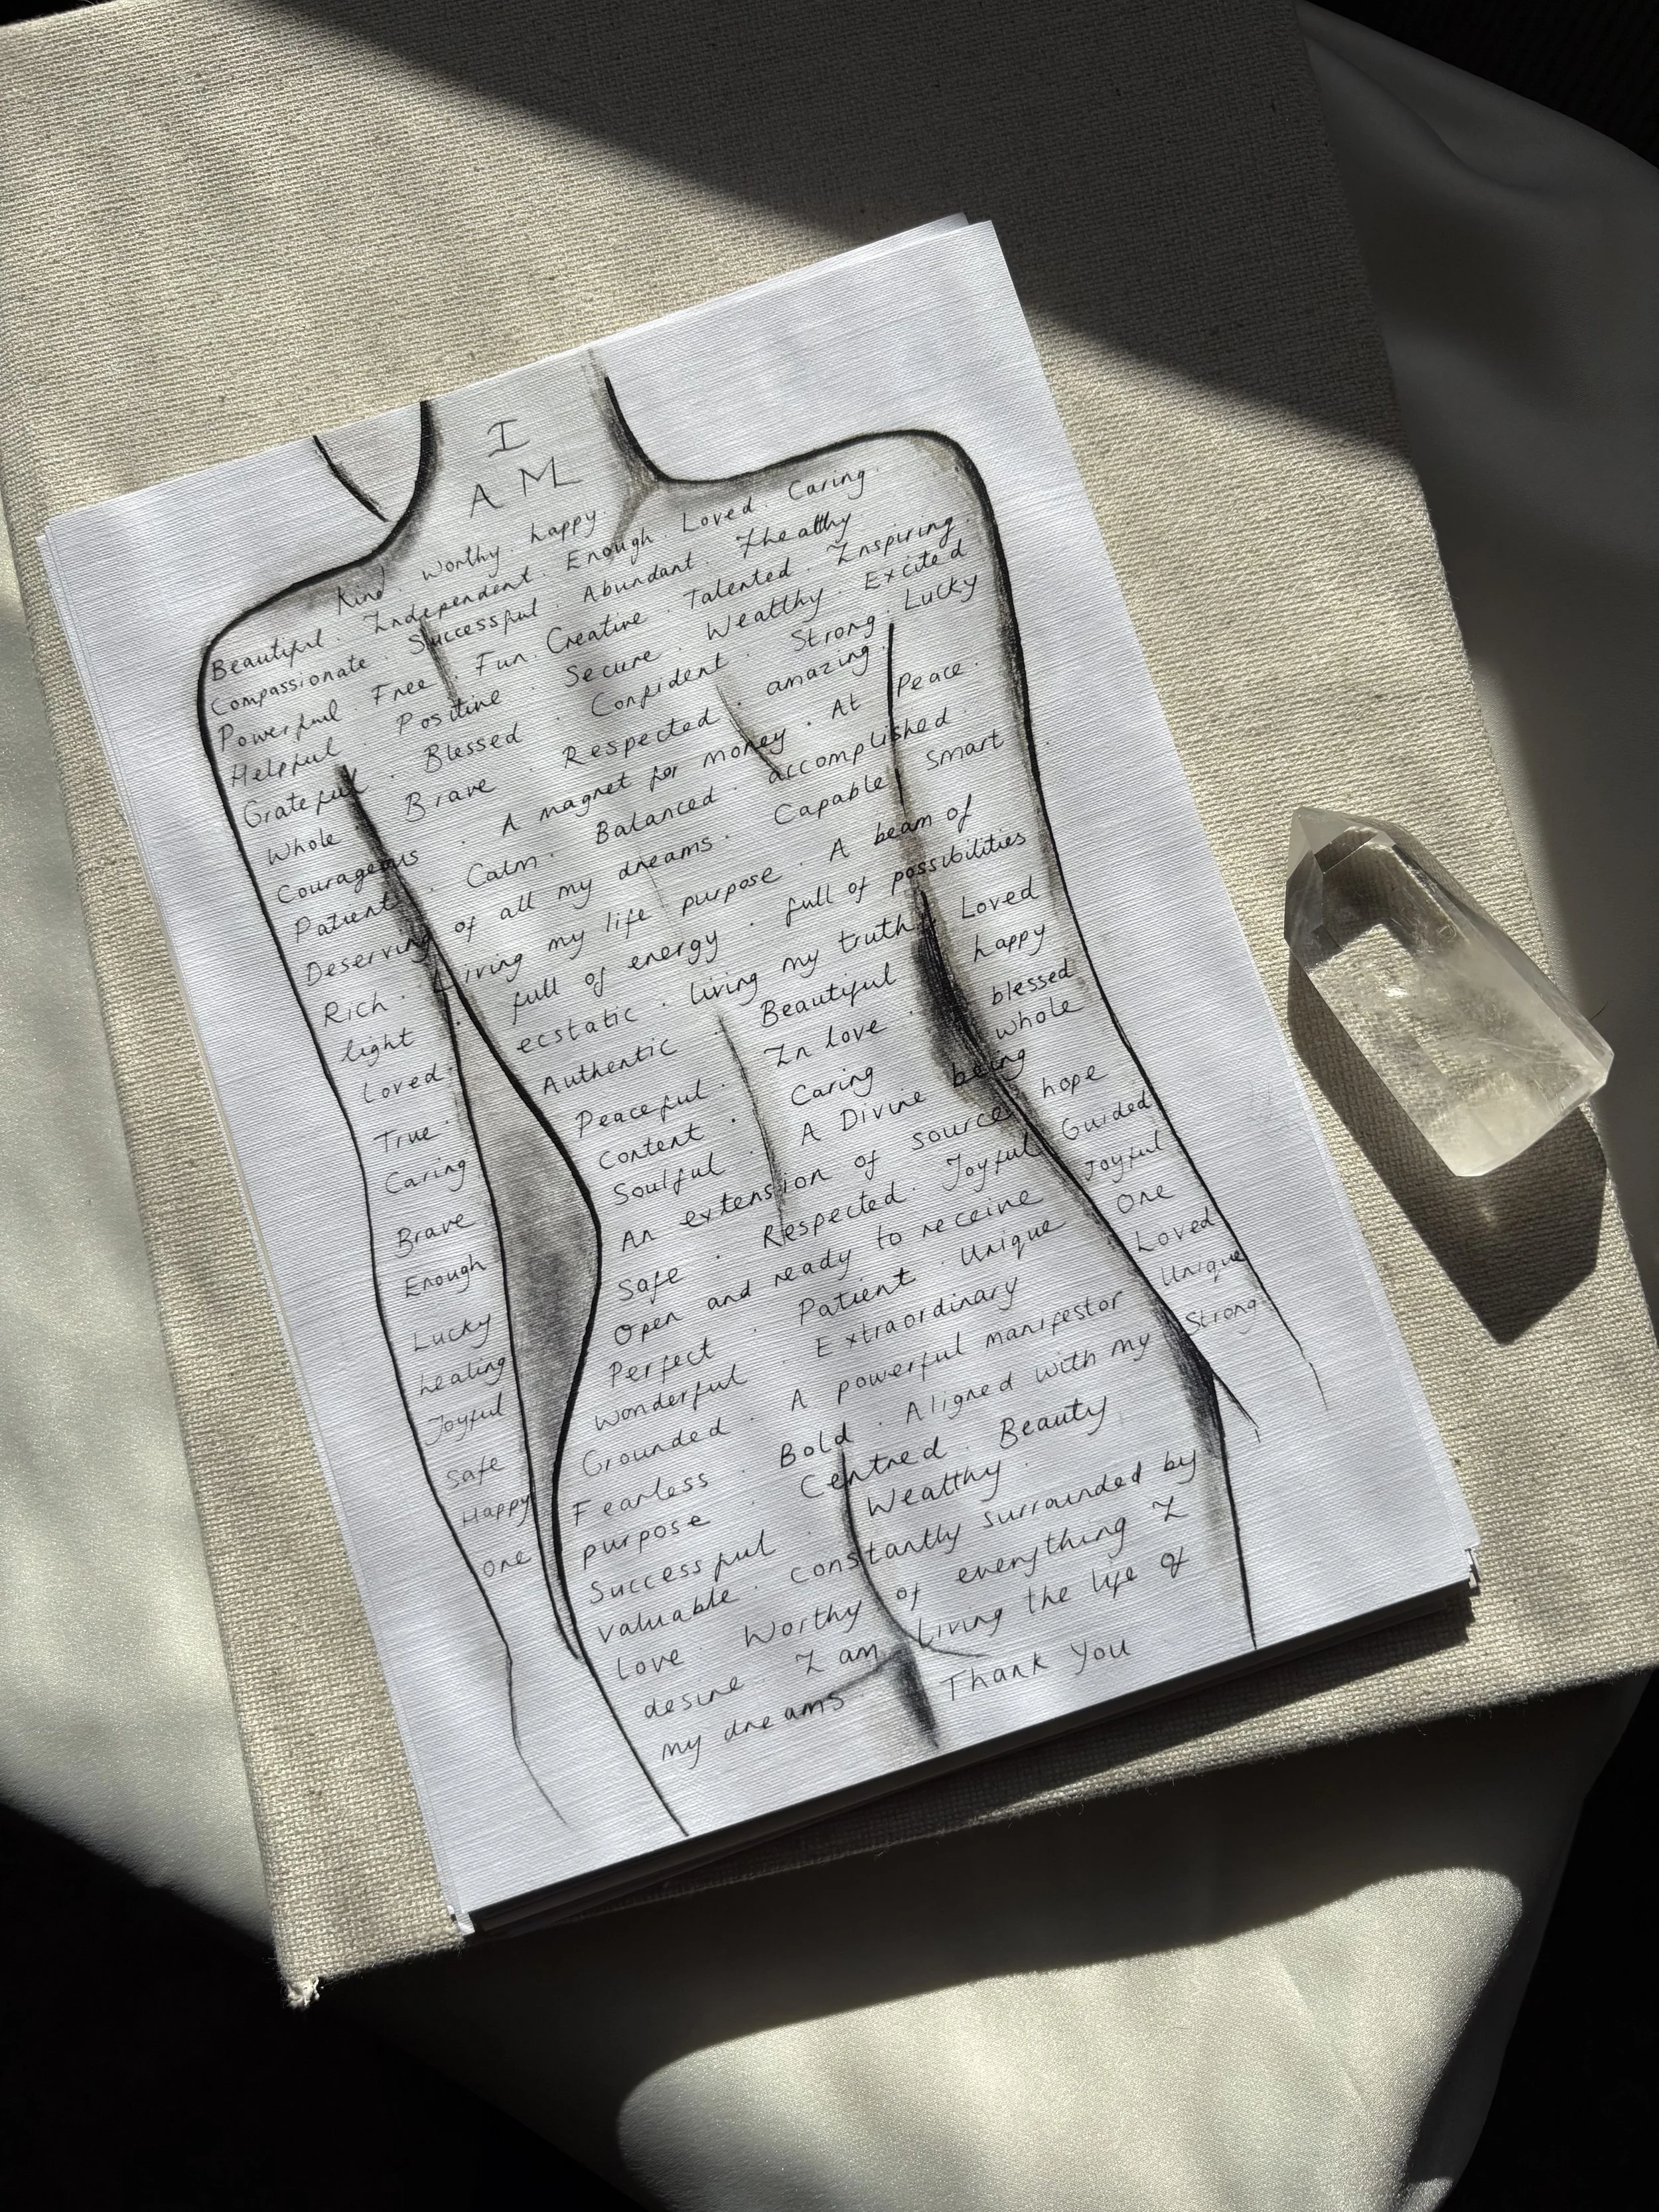 I
AM
Kind. Worthy. happy.
Beautiful. Independent. Enough. Loved. Caring.
Compassionate. Successful. Abundant. Healthy.
Powerful. Free. Fun. Creative. Talented. Inspiring.
Helpful. Positive. Secure. Wealthy. Excited
Grateful. Blessed. Confident. Strong. Lucky
Whole. Brave. Respected. amazing.
Courageous. A magnet for money. At Peace.
Patient. Calm. Balanced. accomplished.
Deserving of all my dreams. Capable. Smart
Rich. Living my life purpose. A beam of
light. full of energy. full of possibilities
Loved. ecstatic. living my truth. Loved
True. Authentic. Beautiful. happy
Caring Peaceful. In love. blessed
Brave Content. Caring whole
Enough Soulful. A Divine being
Lucky An extension of source. hope
healing Safe. Respected. Joyful Guided
Joyful Open and ready to receive Joyful
Safe Perfect. Patient. Unique One
Happy Wonderful. Extraordinary Loved
One Grounded. A powerful manifestor Unique
Fearless. Bold. Aligned with my Strong
purpose. Centred. Beauty
Successful. Wealthy.
Valuable. Constantly surrounded by
love. Worthy of everything I
desire. I am Living the life of
my dreams. Thank You